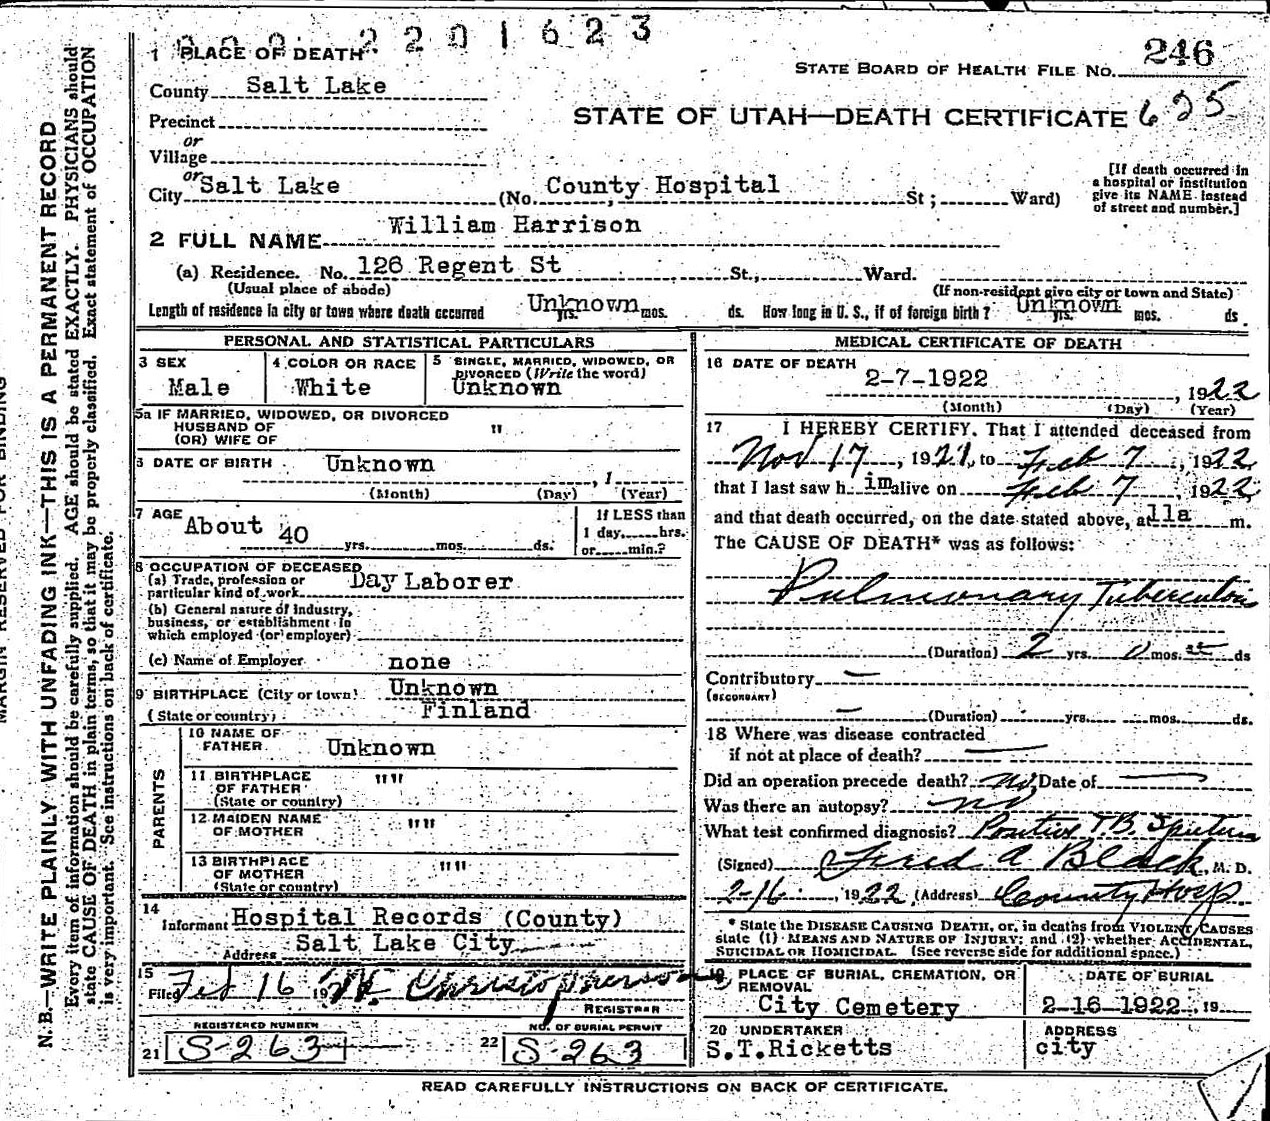 2201623
1 PLACE OF DEATH
STATE BOARD OF HEALTH FILE NO. 246
County Salt Lake
STATE OF UTAH—DEATH CERTIFICATE 625
Precinct
or
Village
or
City Salt Lake (No. County Hospital St; Ward)
[If death occurred in a hospital or institution give its NAME instead of street and number.]
2 FULL NAME William Harrison
(a) Residence. No. 126 Regent St St., Ward.
(Usual place of abode) (If non-resident give city or town and State)
Length of residence in city or town where death occurred Unknown yrs. mos. ds. How long in U. S., if of foreign birth? Unknown yrs. mos. ds.
PERSONAL AND STATISTICAL PARTICULARS
3 SEX Male
4 COLOR OR RACE White
5 SINGLE, MARRIED, WIDOWED, OR DIVORCED (Write the word) Unknown
5a IF MARRIED, WIDOWED, OR DIVORCED
HUSBAND OF
(OR) WIFE OF "
6 DATE OF BIRTH Unknown , 1
(Month) (Day) (Year)
7 AGE About 40 yrs. mos. ds.
If LESS than
1 day, hrs.
or min.?
8 OCCUPATION OF DECEASED
(a) Trade, profession or
particular kind of work Day Laborer
(b) General nature of industry,
business, or establishment in
which employed (or employer)
(c) Name of Employer none
9 BIRTHPLACE (City or town) Unknown
(State or country) Finland
PARENTS
10 NAME OF
FATHER Unknown
11 BIRTHPLACE
OF FATHER """
(State or country)
12 MAIDEN NAME
OF MOTHER """
13 BIRTHPLACE
OF MOTHER """
(State or country)
14
Informant Hospital Records (County)
Address Salt Lake City
15
Filed Feb 16 19 W. Christopherson
REGISTRAR
REGISTERED NUMBER
21 S-263
NO. OF BURIAL PERMIT
22 S-263
MEDICAL CERTIFICATE OF DEATH
16 DATE OF DEATH
2-7-1922 , 1922
(Month) (Day) (Year)
17 I HEREBY CERTIFY, That I attended deceased from
Nov 17, 1921, to Feb 7, 1922
that I last saw him alive on Feb 7, 1922
and that death occurred, on the date stated above, at 11a m.
The CAUSE OF DEATH* was as follows:
Pulmonary Tuberculosis
(Duration) 2 yrs. mos. ds
Contributory —
(SECONDARY)
— (Duration) yrs. mos. ds.
18 Where was disease contracted
if not at place of death? —
Did an operation precede death? no Date of —
Was there an autopsy? no
What test confirmed diagnosis? Positive T.B. Sputum
(Signed) Fred A Black, M. D.
2-16 1922 (Address) County Hosp
* State the DISEASE CAUSING DEATH, or, in deaths from VIOLENT CAUSES
state (1) MEANS AND NATURE OF INJURY; and (2) whether ACCIDENTAL,
SUICIDAL OR HOMICIDAL. (See reverse side for additional space.)
19 PLACE OF BURIAL, CREMATION, OR
REMOVAL
City Cemetery
DATE OF BURIAL
2-16-1922 19
20 UNDERTAKER
S.T.Ricketts
ADDRESS
city
READ CAREFULLY INSTRUCTIONS ON BACK OF CERTIFICATE.
MARGIN RESERVED FOR BINDING
N. B.—WRITE PLAINLY WITH UNFADING INK—THIS IS A PERMANENT RECORD
Every item of information should be carefully supplied. AGE should be stated EXACTLY. PHYSICIANS should
state CAUSE OF DEATH in plain terms, so that it may be properly classified. Exact statement of OCCUPATION
is very important. See instructions on back of certificate.